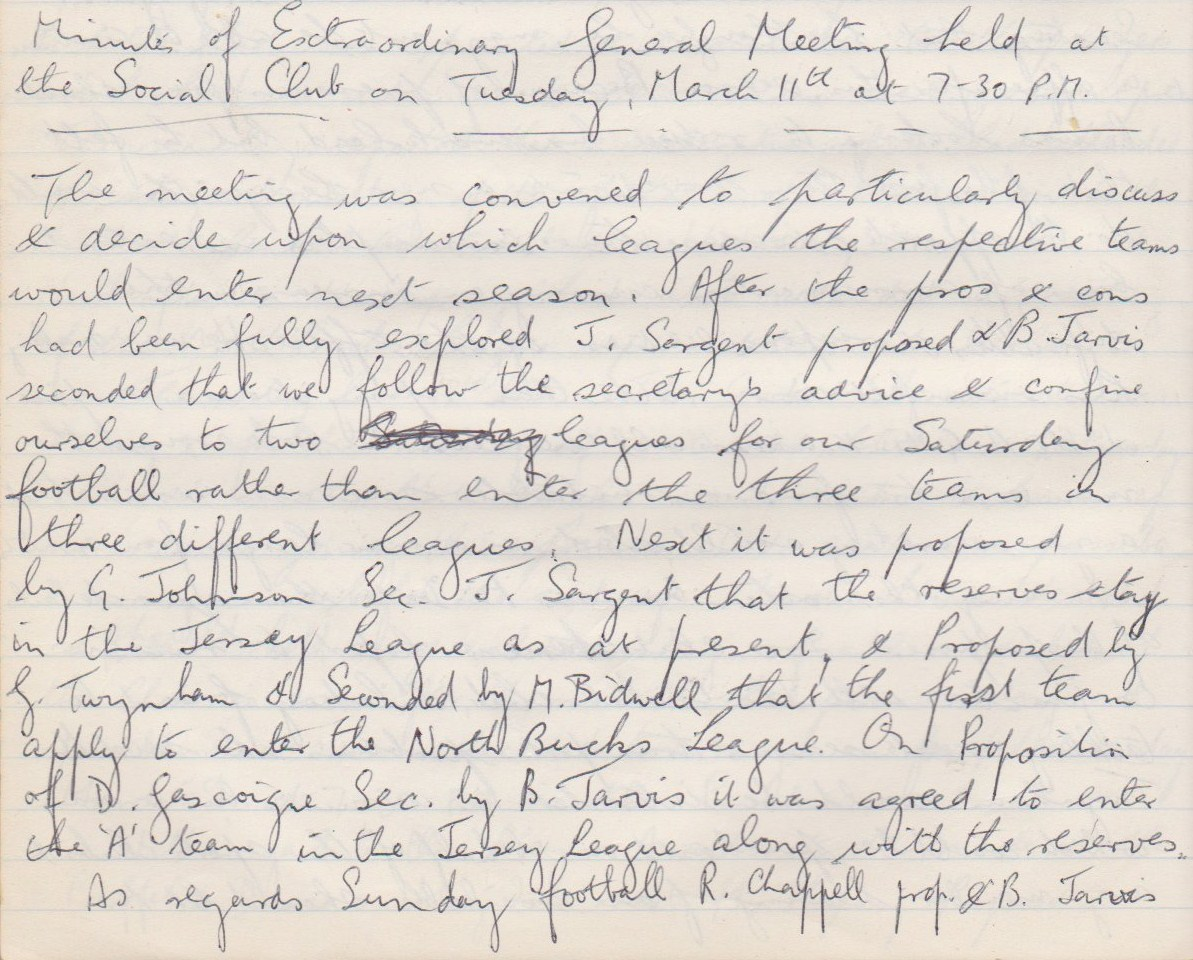 Minutes of Extraordinary General Meeting held at
the Social Club on Tuesday, March 11th at 7-30 P.M.
The meeting was convened to particularly discuss
& decide upon which leagues the respective teams
would enter next season. After the pros & cons
had been fully explored J. Sargent proposed & B. Jarvis
seconded that we follow the secretary's advice & confine
ourselves to two leagues for our Saturday
football rather than enter the three teams in
three different leagues. Next it was proposed
by G. Johnson Sec. J. Sargent that the reserves stay
in the Jersey League as at present, & Proposed by
G. Twynham & Seconded by M. Bidwell that the first team
apply to enter the North Bucks League. On Proposition
of D. Gascoigne Sec. by B. Jarvis it was agreed to enter
the 'A' team in the Jersey League along with the reserves.
As regards Sunday football R. Chappell prop. & B. Jarvis